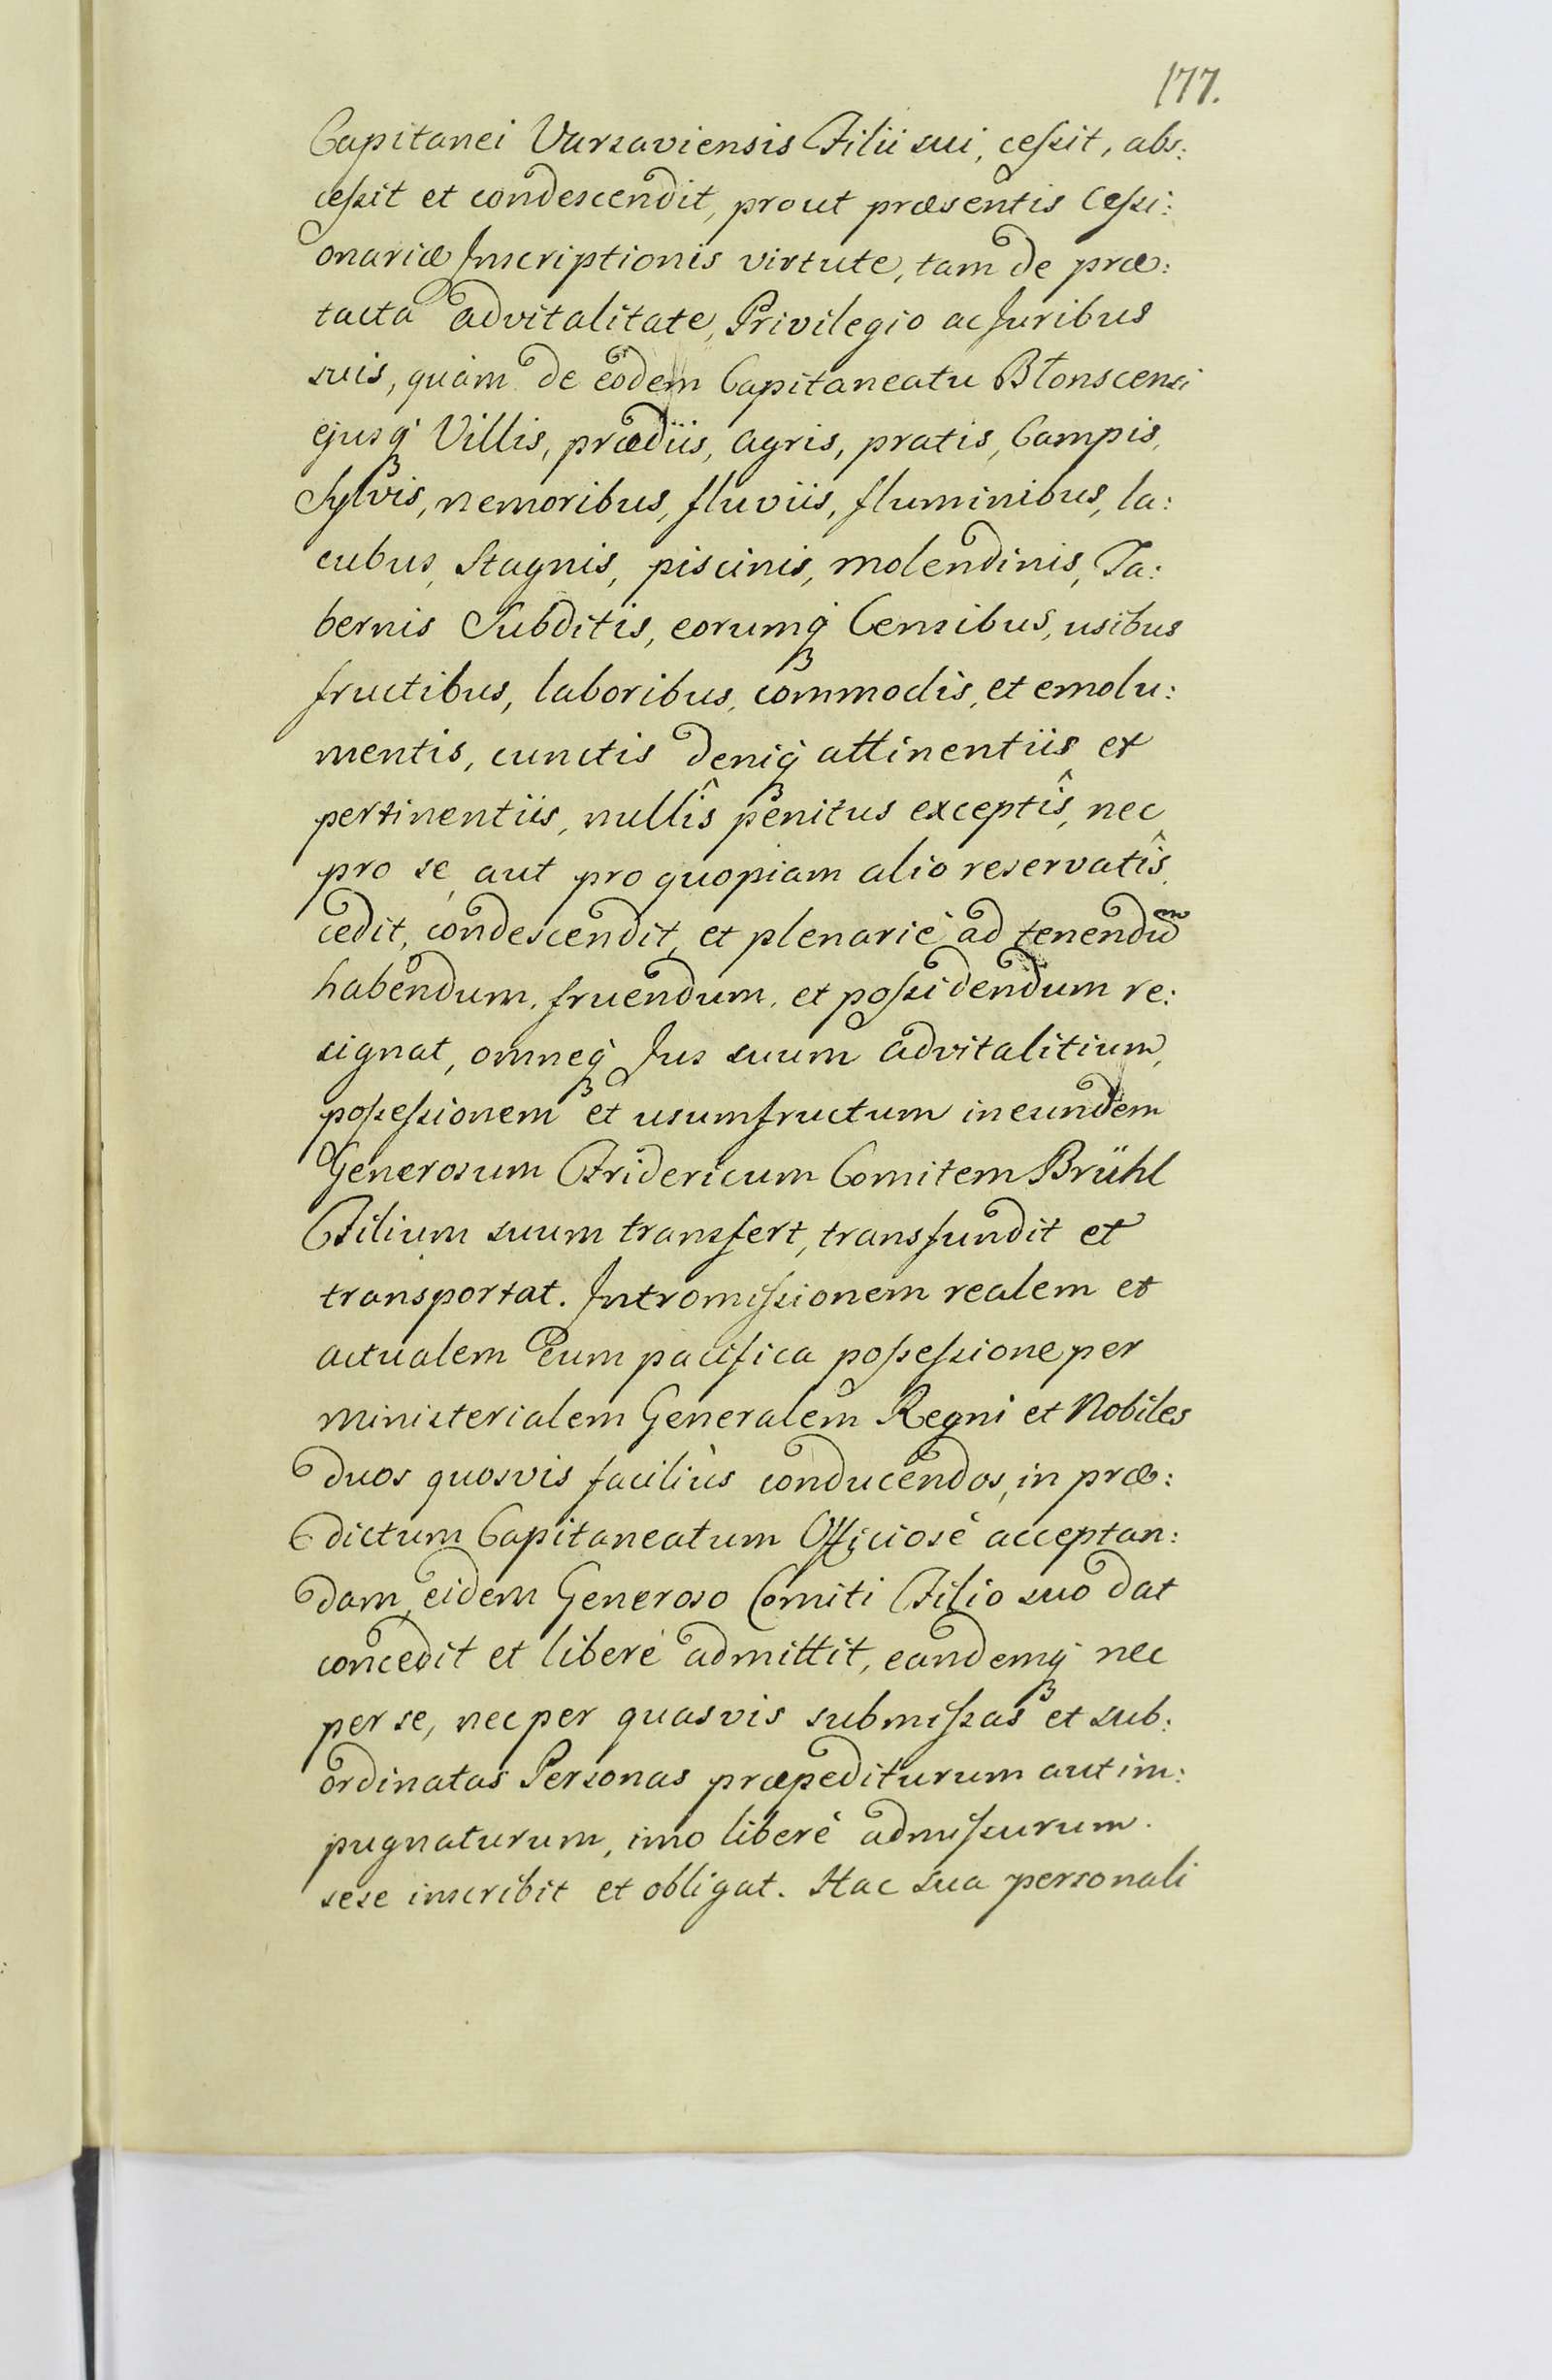 177.
Capitanei Varsaviensis Filii sui, cessit, abs:
cessit et condescendit, prout præsentis Cessi:
onariæ Inscriptionis virtute, tam de præ:
tacta advitalitate, Privilegio ac Juribus
suis, quàm de eodem Capitaneatu Błonscensi
ejusqꝫ Villis, prædiis, agris, pratis, Campis,
Sylvis, nemoribus, fluviis, fluminibus, la:
cubus, Stagnis, piscinis, molendinis, Ta:
bernis Subditis, eorumqꝫ Censibus, usibus
fructibus, laboribus, commodis, et emolu:
mentis, cunctis deniqꝫ attinentiis et
pertinentiis, nullîs penitus exceptîs, nec
pro se, aut pro quopiam alio reservatîs,
cedit, condescendit, et plenariè ad tenendũm
habendum, fruendum, et possidendum re:
signat, omneqꝫ Jus suum advitalitium,
possessionem et usumfructum in eundem
Generosum Fridericum Comitem Brühl
Filium suum transfert, transfundit et
transportat. Intromissionem realem et
actualem cum pacifica possessione per
Ministerialem Generalem Regni et Nobiles
duos quosvis faciliùs conducendos, in præ:
dictum Capitaneatum Officiosè acceptan:
dam, eidem Generoso Comiti Filio suo dat
concedit et liberè admittit, eandemqꝫ nec
per se, nec per quasvis submissas et sub:
ordinatas Personas præpediturum aut im:
pugnaturum, imo liberè admissurum.
sese inscribit et obligat. Hac sua personali